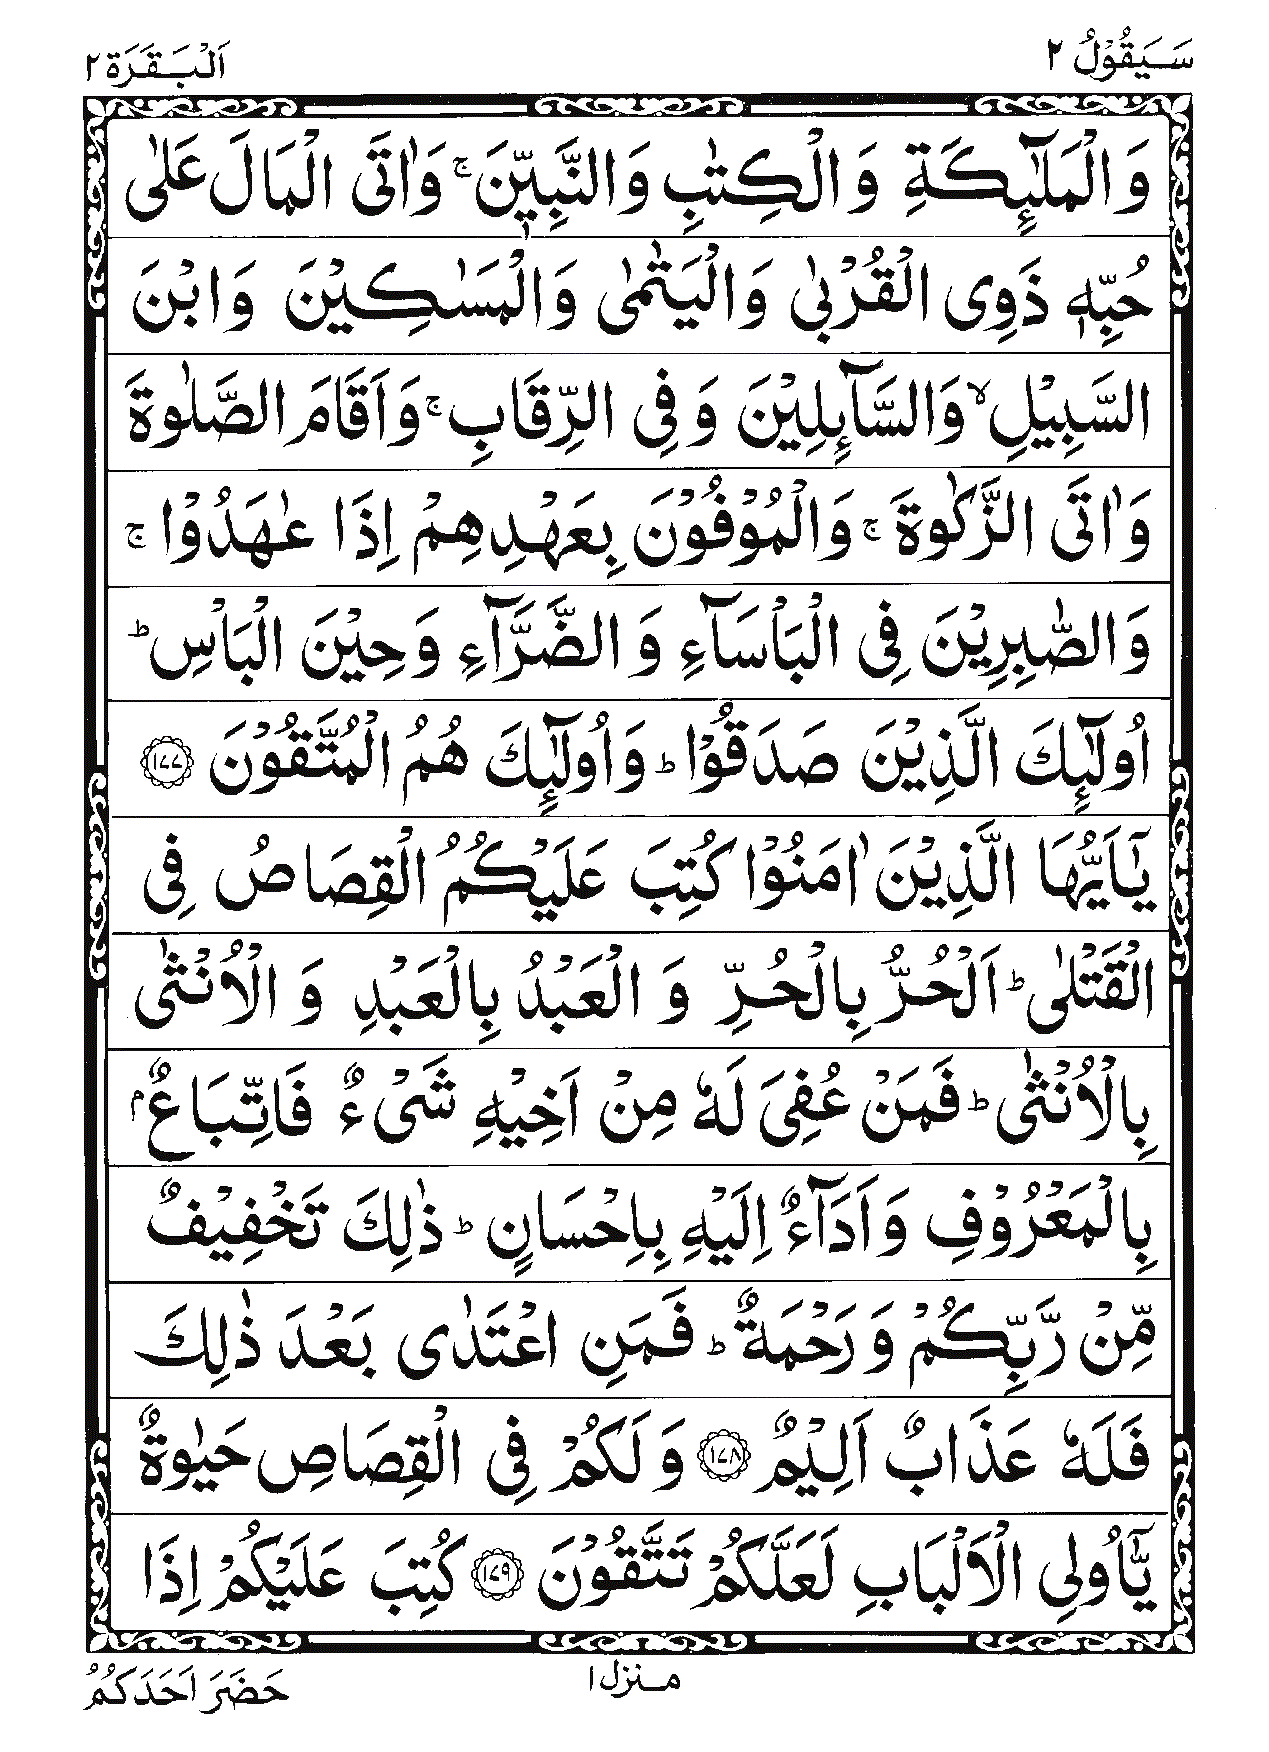 سَيَقُوْلُ ٢
اَلْبَقَرَة ٢
وَالْمَلٰٓئِكَةِ وَالْكِتٰبِ وَالنَّبِيّٖنَ ۚ وَاٰتَى الْمَالَ عَلٰى
حُبِّهٖ ذَوِى الْقُرْبٰى وَالْيَتٰمٰى وَالْمَسٰكِيْنَ وَابْنَ
السَّبِيْلِ ۙ وَالسَّآئِلِيْنَ وَفِى الرِّقَابِ ۚ وَاَقَامَ الصَّلٰوةَ
وَاٰتَى الزَّكٰوةَ ۚ وَالْمُوْفُوْنَ بِعَهْدِهِمْ اِذَا عٰهَدُوْا ۚ
وَالصّٰبِرِيْنَ فِى الْبَاْسَآءِ وَالضَّرَّآءِ وَحِيْنَ الْبَاْسِ ؕ
اُولٰٓئِكَ الَّذِيْنَ صَدَقُوْا ؕ وَاُولٰٓئِكَ هُمُ الْمُتَّقُوْنَ ١٧٧
يٰٓاَيُّهَا الَّذِيْنَ اٰمَنُوْا كُتِبَ عَلَيْكُمُ الْقِصَاصُ فِى
الْقَتْلٰى ؕ اَلْحُرُّ بِالْحُرِّ وَالْعَبْدُ بِالْعَبْدِ وَالْاُنْثٰى
بِالْاُنْثٰى ؕ فَمَنْ عُفِىَ لَهٗ مِنْ اَخِيْهِ شَىْءٌ فَاتِّبَاعٌ ۢ
بِالْمَعْرُوْفِ وَاَدَآءٌ اِلَيْهِ بِاِحْسَانٍ ؕ ذٰلِكَ تَخْفِيْفٌ
مِّنْ رَّبِّكُمْ وَرَحْمَةٌ ؕ فَمَنِ اعْتَدٰى بَعْدَ ذٰلِكَ
فَلَهٗ عَذَابٌ اَلِيْمٌ ١٧٨ وَلَكُمْ فِى الْقِصَاصِ حَيٰوةٌ
يّٰٓاُولِى الْاَلْبَابِ لَعَلَّكُمْ تَتَّقُوْنَ ١٧٩ كُتِبَ عَلَيْكُمْ اِذَا
منزل ١
حَضَرَ اَحَدَكُمُ